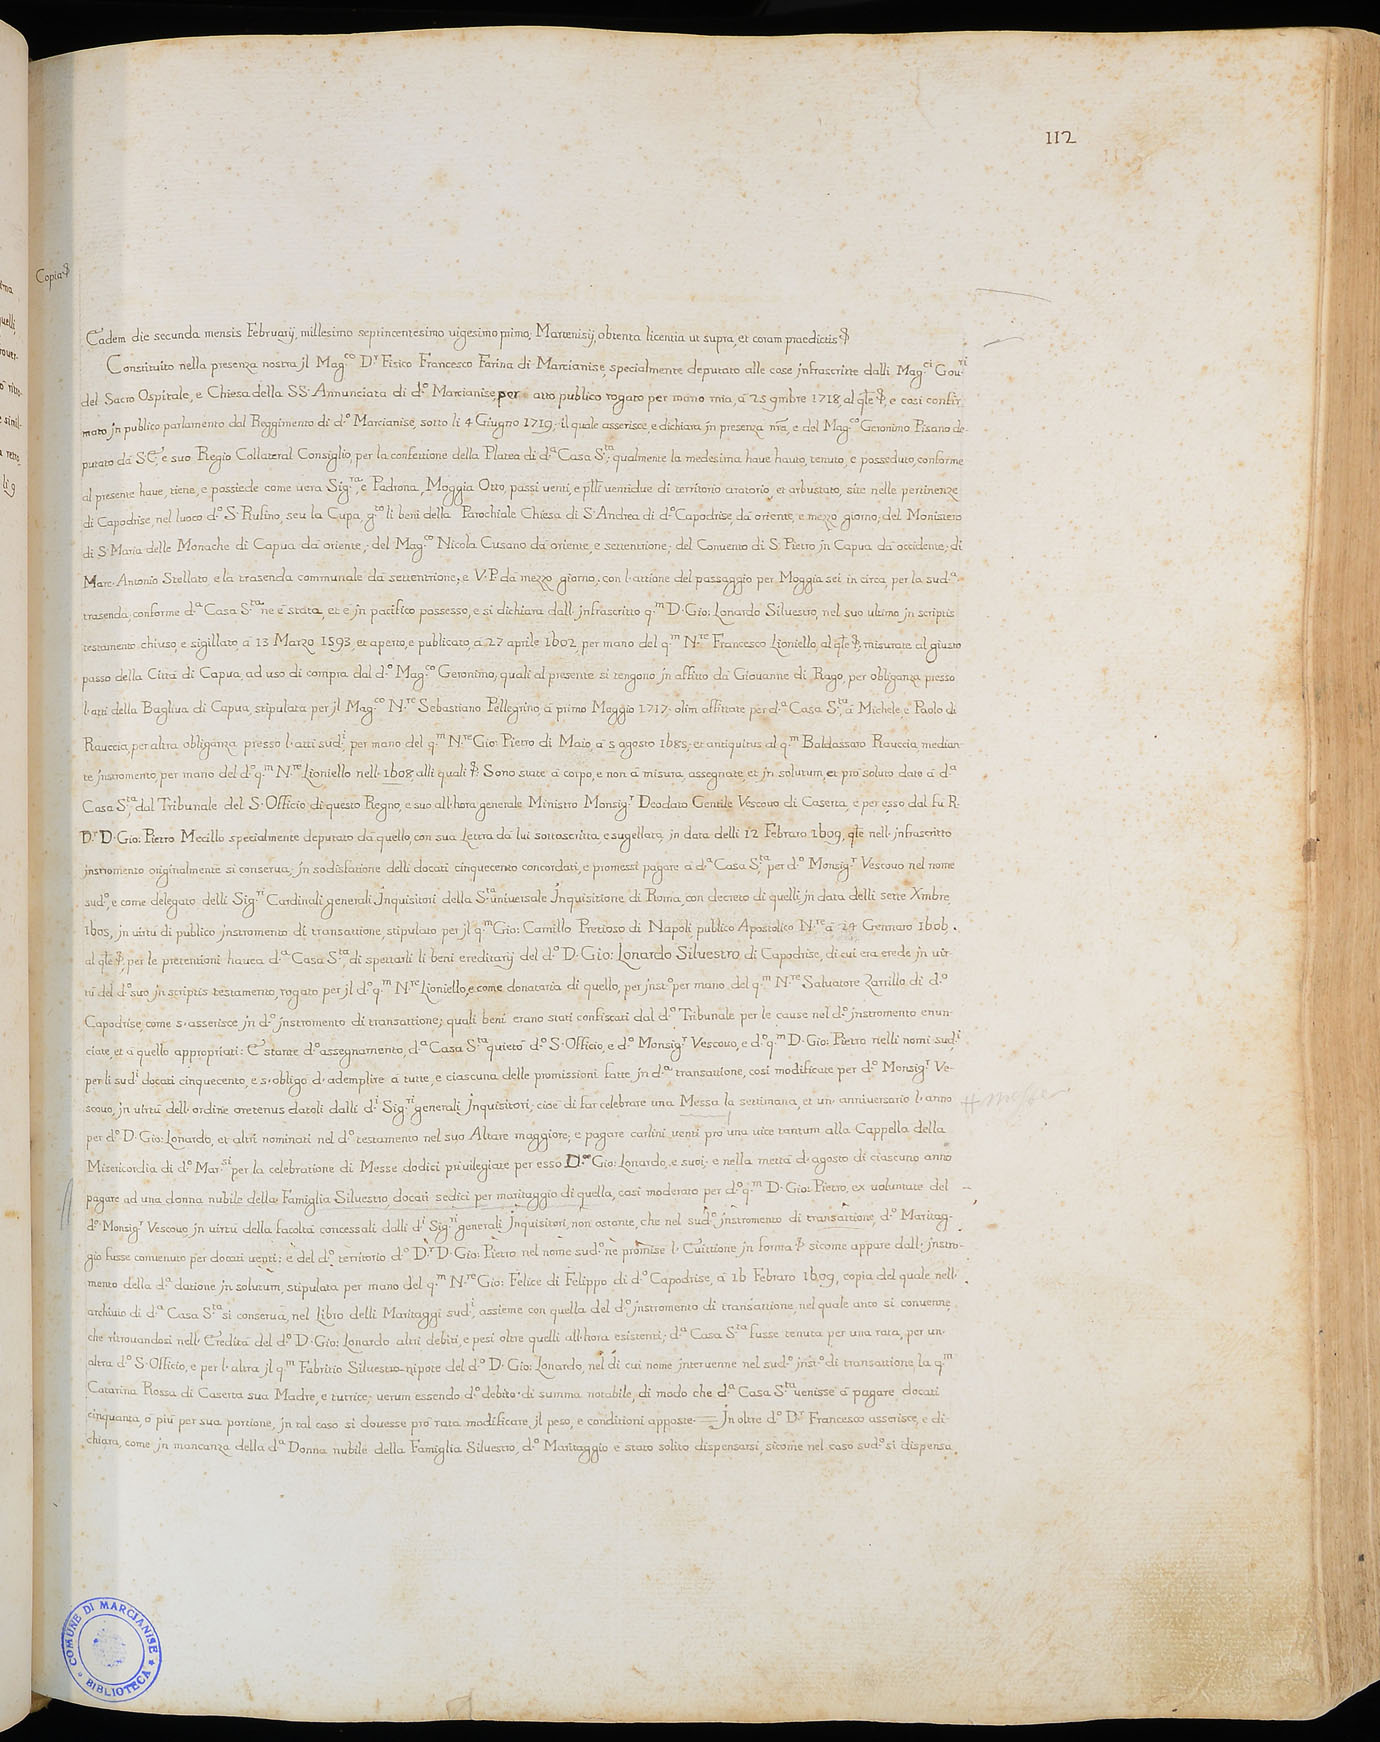 112
Copia
Eadem die secunda mensis Februarij, millesimo septincentesimo uigesimo primo; Marcenisij, obtenta licentia ut supra, et coram praedictis
Constituito nella presenza nostra jl Mag.co D.r Fisico Francesco Farina di Marcianise, specialmente deputato alle cose jnfrascritte dalli Mag.ci Gou.ri
del Sacro Ospitale, e Chiesa della SS. Annunciata di d.o Marcianise, per atto publico rogato per mano mia, à 25 9mbre 1718, al qle, e così confir-
mato jn publico parlamento dal Reggimento di d.o Marcianise, sotto li 4 Giugno 1719; il quale asserisce, e dichiara jn presenza nra, e del Mag.co Geronimo Pisano de-
putato da S.E. e suo Regio Collateral Consiglio, per la confettione della Platea di d.a Casa S.ta; qualmente la medesima haue hauto, tenuto, e posseduto, conforme
al presente haue, tiene, e possiede come uera Sig.ra, e Padrona, Moggia Otto, passi uenti, e plli uentidue di territorio aratorio, et arbustato, site nelle pertinenze
di Capodrise, nel luoco d.o S. Rufino, seu la Cupa, g.to li beni della Parochiale Chiesa di S. Andrea di d.o Capodrise, da oriente, e mezzo giorno; del Monistero
di S. Maria delle Monache di Capua da oriente; del Mag.co Nicola Cusano da oriente, e settentrione; del Conuento di S. Pietro jn Capua da occidente; di
Marc. Antonio Stellato e la trasenda communale da settentrione, e V.P. da mezzo giorno; con l'attione del passaggio per Moggia sei in circa, per la sud.a
trasenda, conforme d.a Casa S.ta ne è stata, et è jn pacifico possesso, e si dichiara dall'jnfrascritto q.m D. Gio: Lonardo Siluestro, nel suo ultimo jn scriptis
testamento chiuso, e sigillato, à 13 Marzo 1593, et aperto, e publicato, à 27 aprile 1602, per mano del q.m N.re Francesco Lioniello, al qle, misurate al giusto
passo della Città di Capua, ad uso di compra dal d.o Mag.co Geronimo; quali al presente si tengono jn affitto da Giouanne di Rago, per obliganza presso
l'atti della Bagliua di Capua, stipulata per jl Mag.co N.re Sebastiano Pellegrino, à primo Maggio 1717; olim affittate per d.a Casa S.ta à Michele, e Paolo di
Rauccia, per altra obliganza presso l'atti sud.i, per mano del q.m N.re Gio: Pietro di Maio, à 5 agosto 1685; et antiquitus al q.m Baldassaro Rauccia, median-
te jnstromento, per mano del d.o q.m N.re Lioniello nell. 1608, alli quali. Sono state à corpo, e non à misura, assegnate, et jn solutum, et pro soluto date à d.a
Casa S.ta, dal Tribunale del S. Officio di questo Regno, e suo all'hora generale Ministro Monsig.r Deodato Gentile Vescouo di Caserta, e per esso dal fu R.
D.r D. Gio: Pietro Mecillo specialmente deputato da quello, con sua Lettra da lui sottoscritta, e sugellata, jn data delli 12 Febraro 1609, qle nell'jnfrascritto
jnstromento originalmente si conserua; jn sodisfatione delli docati cinquecento concordati, e promessi pagare à d.a Casa S.ta, per d.o Monsig.r Vescouo nel nome
sud.o, e come delegato delli Sig.ri Cardinali generali Jnquisitori della S.ta uniuersale Jnquisitione di Roma, con decreto di quelli, jn data delli sette Xmbre
1605, jn uirtù di publico jnstromento di transattione, stipulato per jl q.m Gio: Camillo Pretioso di Napoli, publico Apostolico N.re à 24 Gennaro 1606.
al qle, per le pretentioni hauea d.a Casa S.ta, di spettarli li beni ereditarij del d.o D. Gio: Lonardo Siluestro, di Capodrise, di cui era erede jn uir-
tù del d.o suo jn scriptis testamento, rogato per jl d.o q.m N.re Lioniello, e come donataria di quello, per jnst.o per mano del q.m N.re Saluatore Zarrillo di d.o
Capodrise, come s'asserisce jn d.o jnstromento di transattione; quali beni erano stati confiscati dal d.o Tribunale per le cause nel d.o jnstromento enun-
ciate, et à quello appropriati: E stante d.o assegnamento, d.a Casa S.ta quietò d.o S. Officio, e d.o Monsig.r Vescouo, e d.o q.m D. Gio: Pietro nelli nomi sud.i
per li sud.i docati cinquecento, e s'obligò d'ademplire à tutte, e ciascuna delle promissioni fatte jn d.a transattione, così modificate per d.o Monsig.r Ve-
scouo, jn uirtù dell'ordine oretenus datoli dalli d.i Sig.ri generali Jnquisitori; cioè di far celebrare una Messa la settimana, et un'anniuersario l'anno
per d.o D. Gio: Lonardo, et altri nominati nel d.o testamento nel suo Altare maggiore; e pagare carlini uenti pro una uice tantum alla Cappella della
Misericordia di d.o Mar.si per la celebratione di Messe dodici priuilegiate per esso D. Gio: Lonardo, e suoi; e nella mettà d'agosto di ciascuno anno
pagare ad una donna nubile della Famiglia Siluestro, docati sedici per maritaggio di quella, così moderato per d.o q.m D. Gio: Pietro, ex uoluntate del
d.o Monsig.r Vescouo, jn uirtù della facoltà concessali dalli d.i Sig.ri generali Jnquisitori, non ostante, che nel sud.o jnstromento di transattione, d.o Maritag-
gio fusse conuenuto per docati uenti: e del d.o territorio d.o D.r D. Gio: Pietro nel nome sud.o ne promise l'Euittione, jn forma, sicome appare dall'jnstro-
mento della d.a datione jn solutum, stipulata per mano del q.m N.re Gio: Felice di Felippo di d.o Capodrise, à 16 Febraro 1609, copia del quale nell'
archiuio di d.a Casa S.ta si conserua, nel Libro delli Maritaggi sud.i, assieme con quella del d.o jnstromento di transattione, nel quale anco si conuenne,
che ritrouandosi nell'Eredità del d.o D. Gio: Lonardo altri debiti, e pesi oltre quelli all'hora esistenti; d.a Casa S.ta fusse tenuta per una rata, per un'
altra d.o S. Officio, e per l'altra jl q.m Fabritio Siluestro nipote del d.o D. Gio: Lonardo, nel di cui nome interuenne nel sud.o jnst.o di transattione, la q.m
Catarina Rossa di Caserta sua Madre, e tutrice; uerum essendo d.o debito di summa notabile, di modo che d.a Casa S.ta uenisse à pagare docati
cinquanta, ò più per sua portione, jn tal caso si douesse pro rata modificare jl peso, e conditioni apposte. Jn oltre d.o D.r Francesco asserisce, e di-
chiara, come jn mancanza della d.a Donna nubile della Famiglia Siluestro, d.o Maritaggio è stato solito dispensarsi, sicome nel caso sud.o si dispensa,
COMUNE DI MARCIANISE
BIBLIOTECA